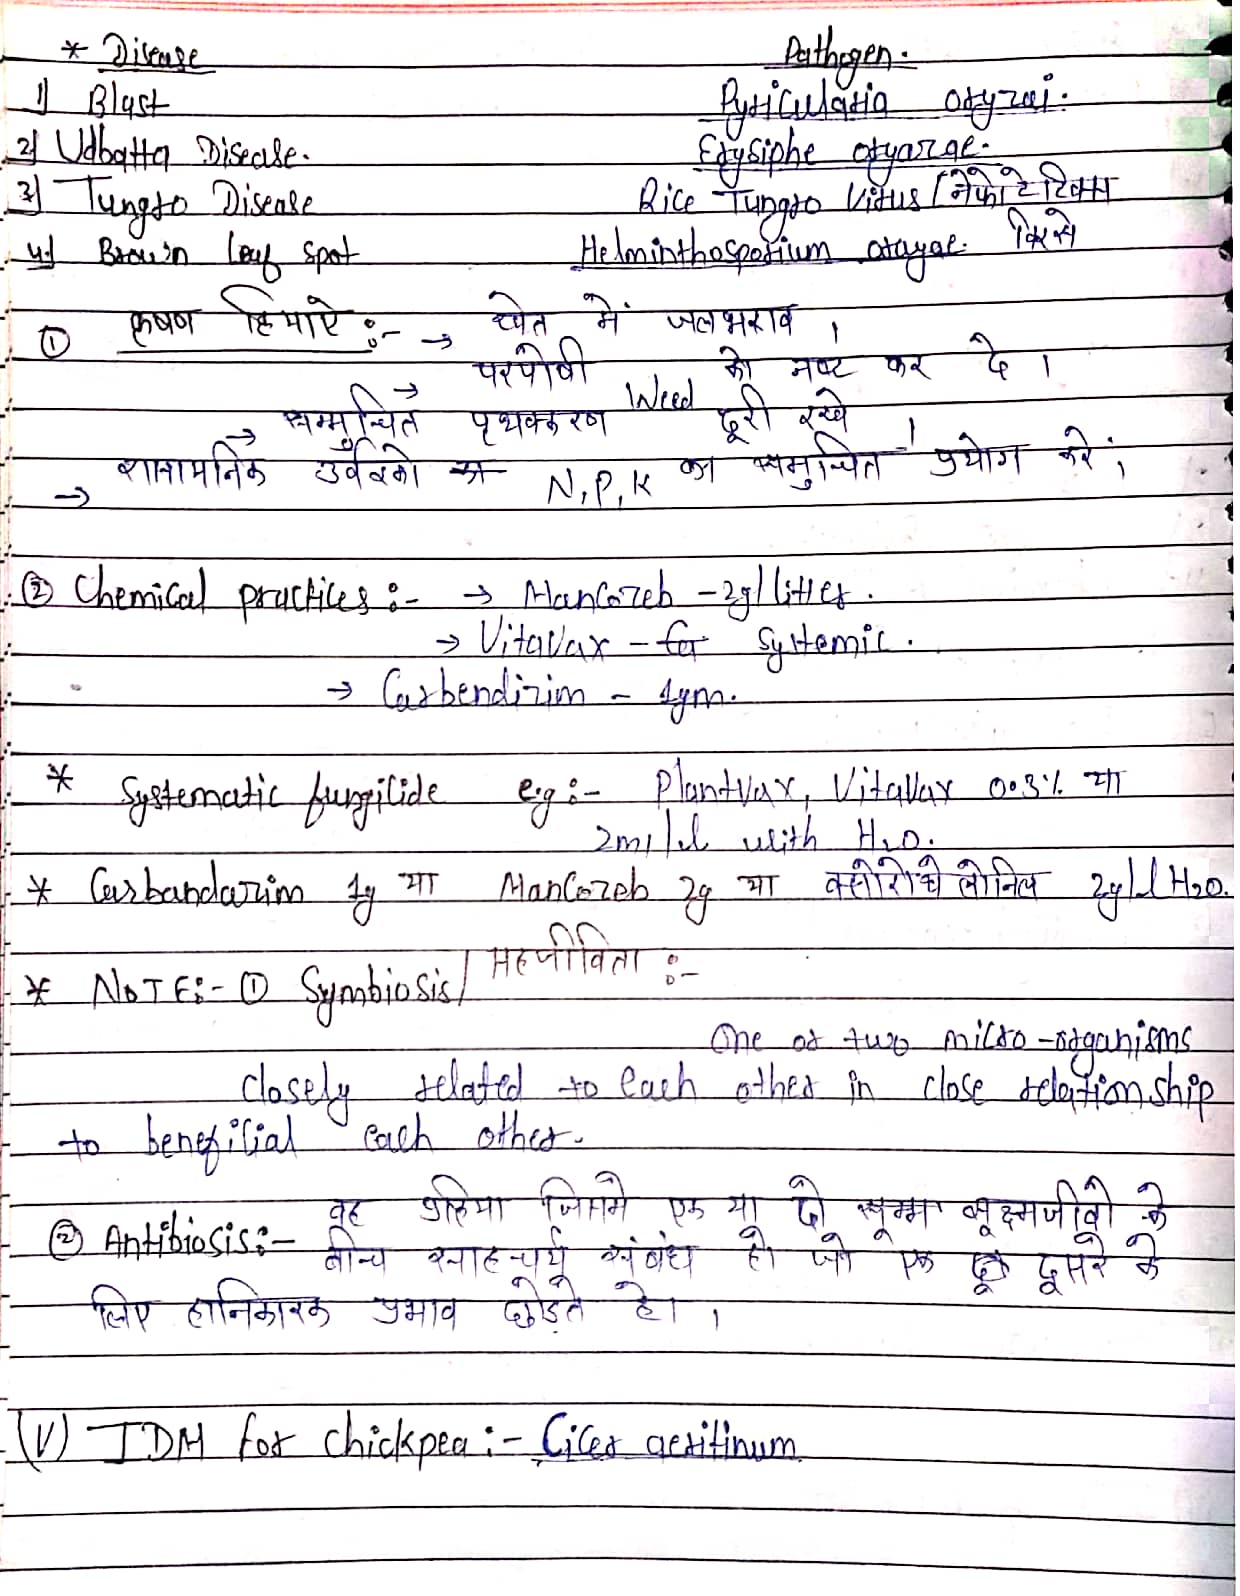 * Disease Pathogen.
1) Blast Pyriculatia oryzai.
2) Udbatta Disease. Erysiphe oryarae.
3) Tungro Disease Rice Tungro Virus / नेफोटेटिक्स
4) Brown leaf spot Helminthosporium orayae. विरसे
① कृषण क्रियाऐ :- → खेत में जलभराव ।
→ परपोषी Weed को नष्ट कर दे ।
→ सम्मुचित पृथक्करण दूरी रखे ।
→ रासायनिक उर्वरको N, P, K का समुचित प्रयोग करे ।
② Chemical practices :- → Mancozeb - 2g/litter.
→ Vitavax - for systemic.
→ Carbendizim - 1gm.
* Systematic fungicide e.g :- Plantvax, Vitavax 0.3% या
2ml/l with H2O.
* Carbandazim 1g या Mancozeb 2g या क्लोरोथेलोनिल 2g/l H2O.
* NOTE:- ① Symbiosis/ सहजीविता :-
One or two micro-organisms
closely related to each other in close relationship
to beneficial each other.
② Antibiosis:- वह प्रक्रिया जिसमे एक या दो सूक्ष्मजीवो के
बीच साहचर्य संबंध हो जो एक दूसरे के
लिए हानिकारक प्रभाव छोड़ते है। ।
(V) IDM for chickpea :- Cicer aeritinum